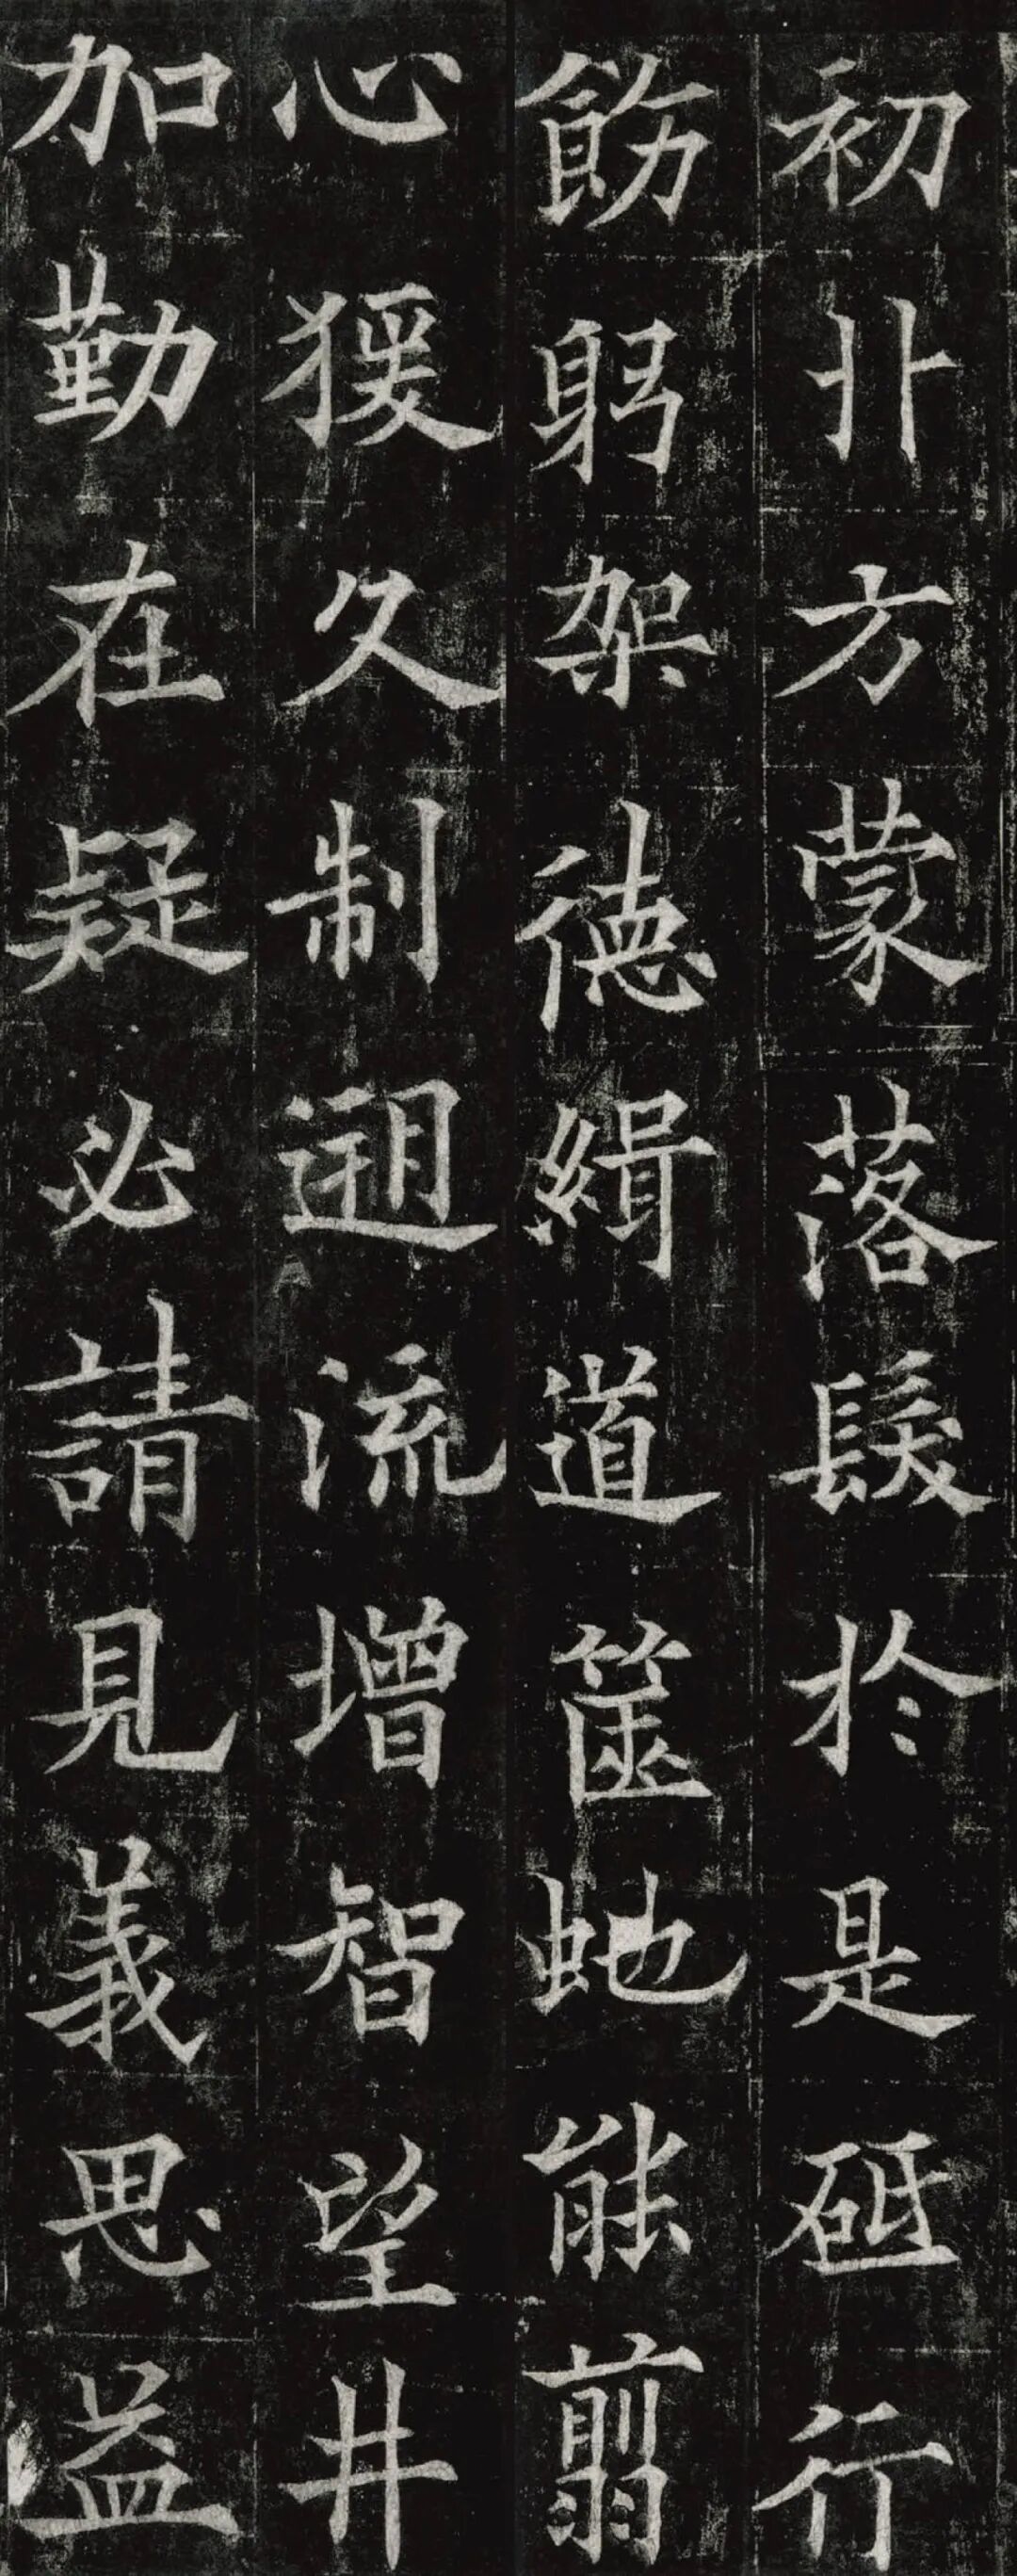 初卝方蒙落髮於是砥行
飭躬架德緝道篋虵能翦
心猨久制迴流增智望井
加勤在疑必請見義思益